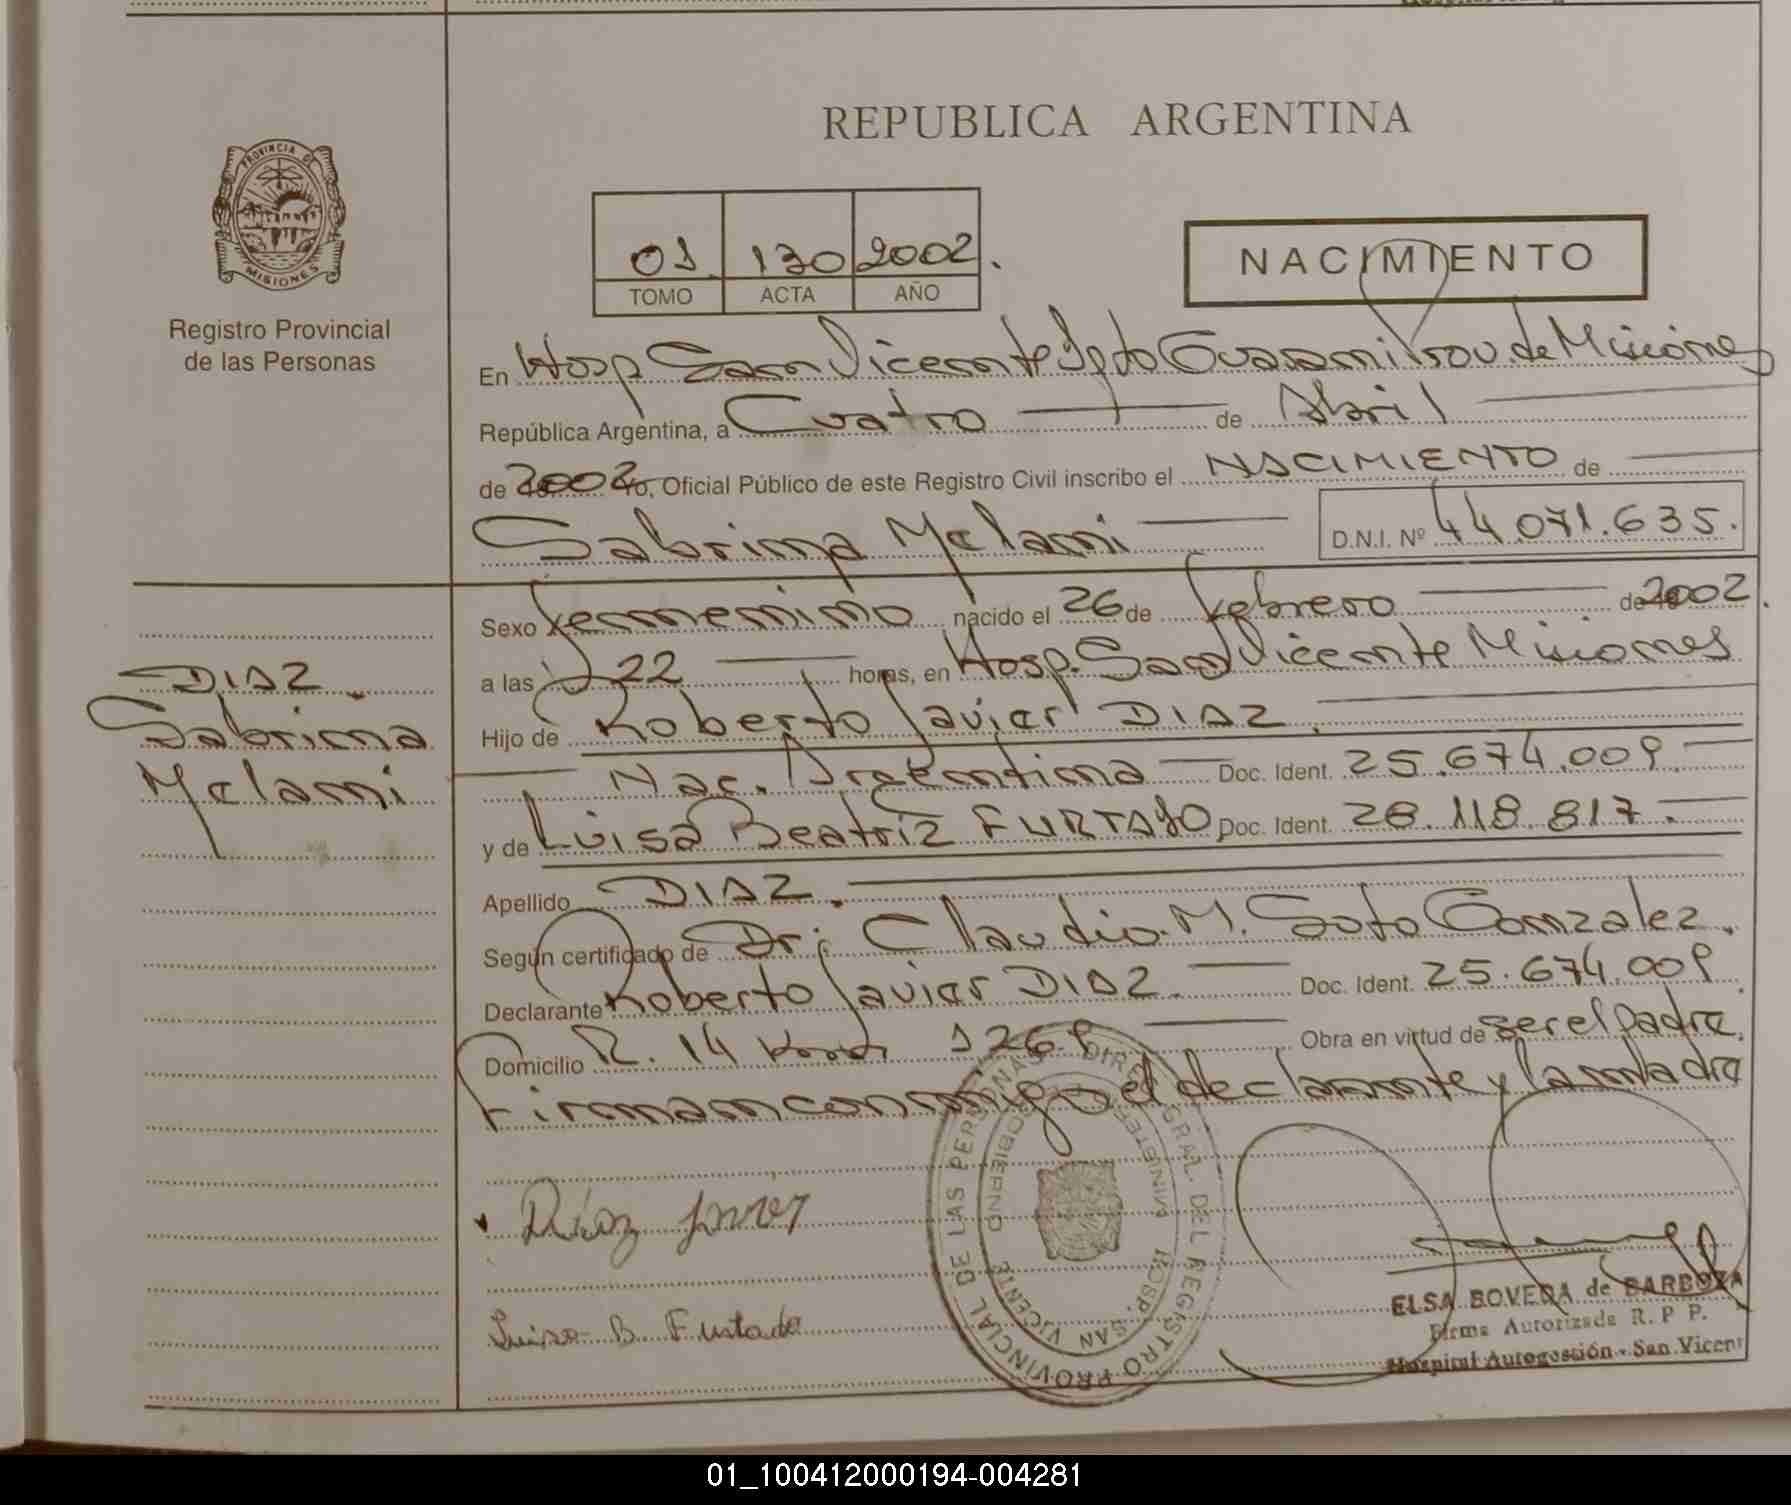 REPUBLICA ARGENTINA
PROVINCIA DE
MISIONES
Registro Provincial
de las Personas
01 130 2002.
TOMO ACTA AÑO
NACIMIENTO
En Hosp San Vicente Dpto Guarani Prov. de Misiones
República Argentina, a Cuatro de Abril
de 2002 Yo, Oficial Público de este Registro Civil inscribo el NACIMIENTO de
Sabrina Melani D.N.I. Nº 44.071.635.
Sexo femenino nacido el 26 de febrero de 2002.
a las 22 horas, en Hosp. San Vicente Misiones
Hijo de Roberto Javier DIAZ.
Nac. Argentina Doc. Ident. 25.674.009.
y de Luisa Beatriz FURTADO Doc. Ident. 28.118.817.
Apellido DIAZ.
Según certificado de Dr: Claudio M. Soto Gonzalez.
Declarante Roberto Javier DIAZ. Doc. Ident. 25.674.009
Domicilio R. 14 Km 1269 Obra en virtud de ser el padre.
Firman conmigo el declarante y la madre
DIAZ.
Sabrina
Melani
Díaz Javier
Luisa B. Furtado
DIRE GRAL. DEL REGISTRO PROVINCIAL DE LAS PERSONAS
GOBIERNO
HOSP. SAN VICENTE
ELSA BOVEDA de BARBOZA
Firma Autorizada R. P P.
Hospital Autogestión - San Vicent
01_100412000194-004281